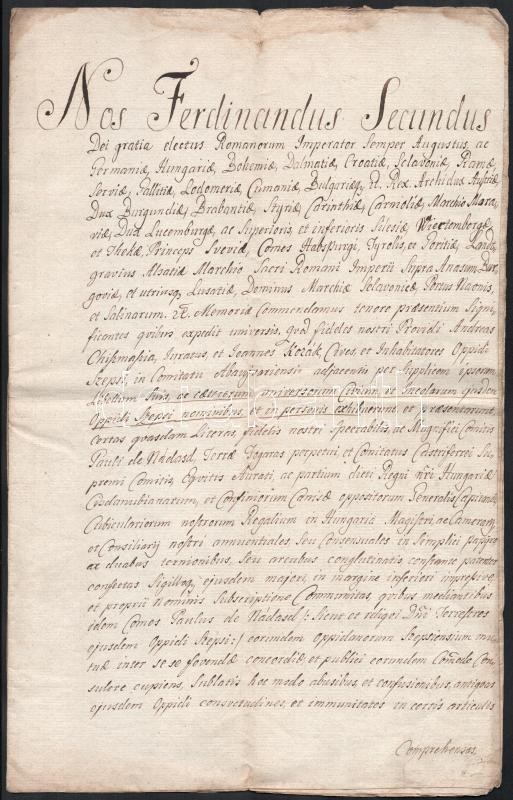 Nos Ferdinandus Secundus
Dei gratia electus Romanorum Imperator Semper Augustus, ac
Germaniæ, Hungariæ, Bohemiæ, Dalmatiæ, Croatiæ, Sclavoniæ Ramæ
Serviæ, Gallitiæ, Lodomeriæ, Cumaniæ, Bulgariæq, Rex, Archidux Austriæ,
Dux Burgundiæ, Brabantiæ, Styriæ, Carinthiæ, Carnioliæ, Marchio Mora
viæ, Dux Lucemburgæ, ac Superioris, et inferioris Silesiæ Wiertembergæ
et Thekæ, Princeps Sveviæ, Comes Habspurgi, Tyrolis, et Goritiæ, Land
gravius Alsatiæ Marchio Sacri Romani Imperii Supra Anasum, Bur
goviæ, et utriusq Lusatiæ, Dominus Marchiæ Sclavonicæ, Portus Naonis,
et Salinarum. Memoriæ Commendamus tenore præsentium Signi
ficantes quibus expedit universis, qvod fideles nostri Providi Andreas
Juratus, et Joannes Kozák, Cives, et Inhabitatores Oppidi
Szepsi, in Comitatu Abaujvariensi adjacentis per Supplicem ipsorum
Libellum Suis, ac cæterorum universorum Civium, et Incolarum ejusdem
Oppidi Szepsi nominibus, et in personis exhibuerunt, et præsentarunt,
certas quasdam Literas, fidelis nostri Spectabilis, ac Magnifici Comitis
Pauli de Nádasd, Terræ Fogaras perpetui, et Comitatus Castriferrei Su
premi Comitis, Equitis Aurati, ac partium dicti Regni nri Hungariæ
Cisdanubianarum, et Confiniorum Canisæ oppositorum Generalis Capitanei
Cubiculariorum nostrorum Regalium in Hungaria Magistri, ac Camerarij
et Consiliarij nostri annuentiales seu Consensuales in Simplici papyro
ex duabus ternionibus, seu arcubus conglutinatis, constante patenter
confectas Sigilloq, ejusdem majori, in margine inferiori impressive,
et proprii Nominis Subscriptione Communitas, quibus mediantibus
idem Comes Paulus de Nádasd /: Sicut et reliqvi Dni Terrestres
ejusdem Oppidi Szepsi :/ eorundem Oppidanorum Szepsiensium mu
tuæ inter se se fovendæ concordiæ, et publici eorundem Comodo, Con
sulere cupiens, Sublatis hoc modo abusibus, et confusionibus, antiquas
ejusdem Oppidi consvetudines, et immunitates in certis articulis
Comprehensas